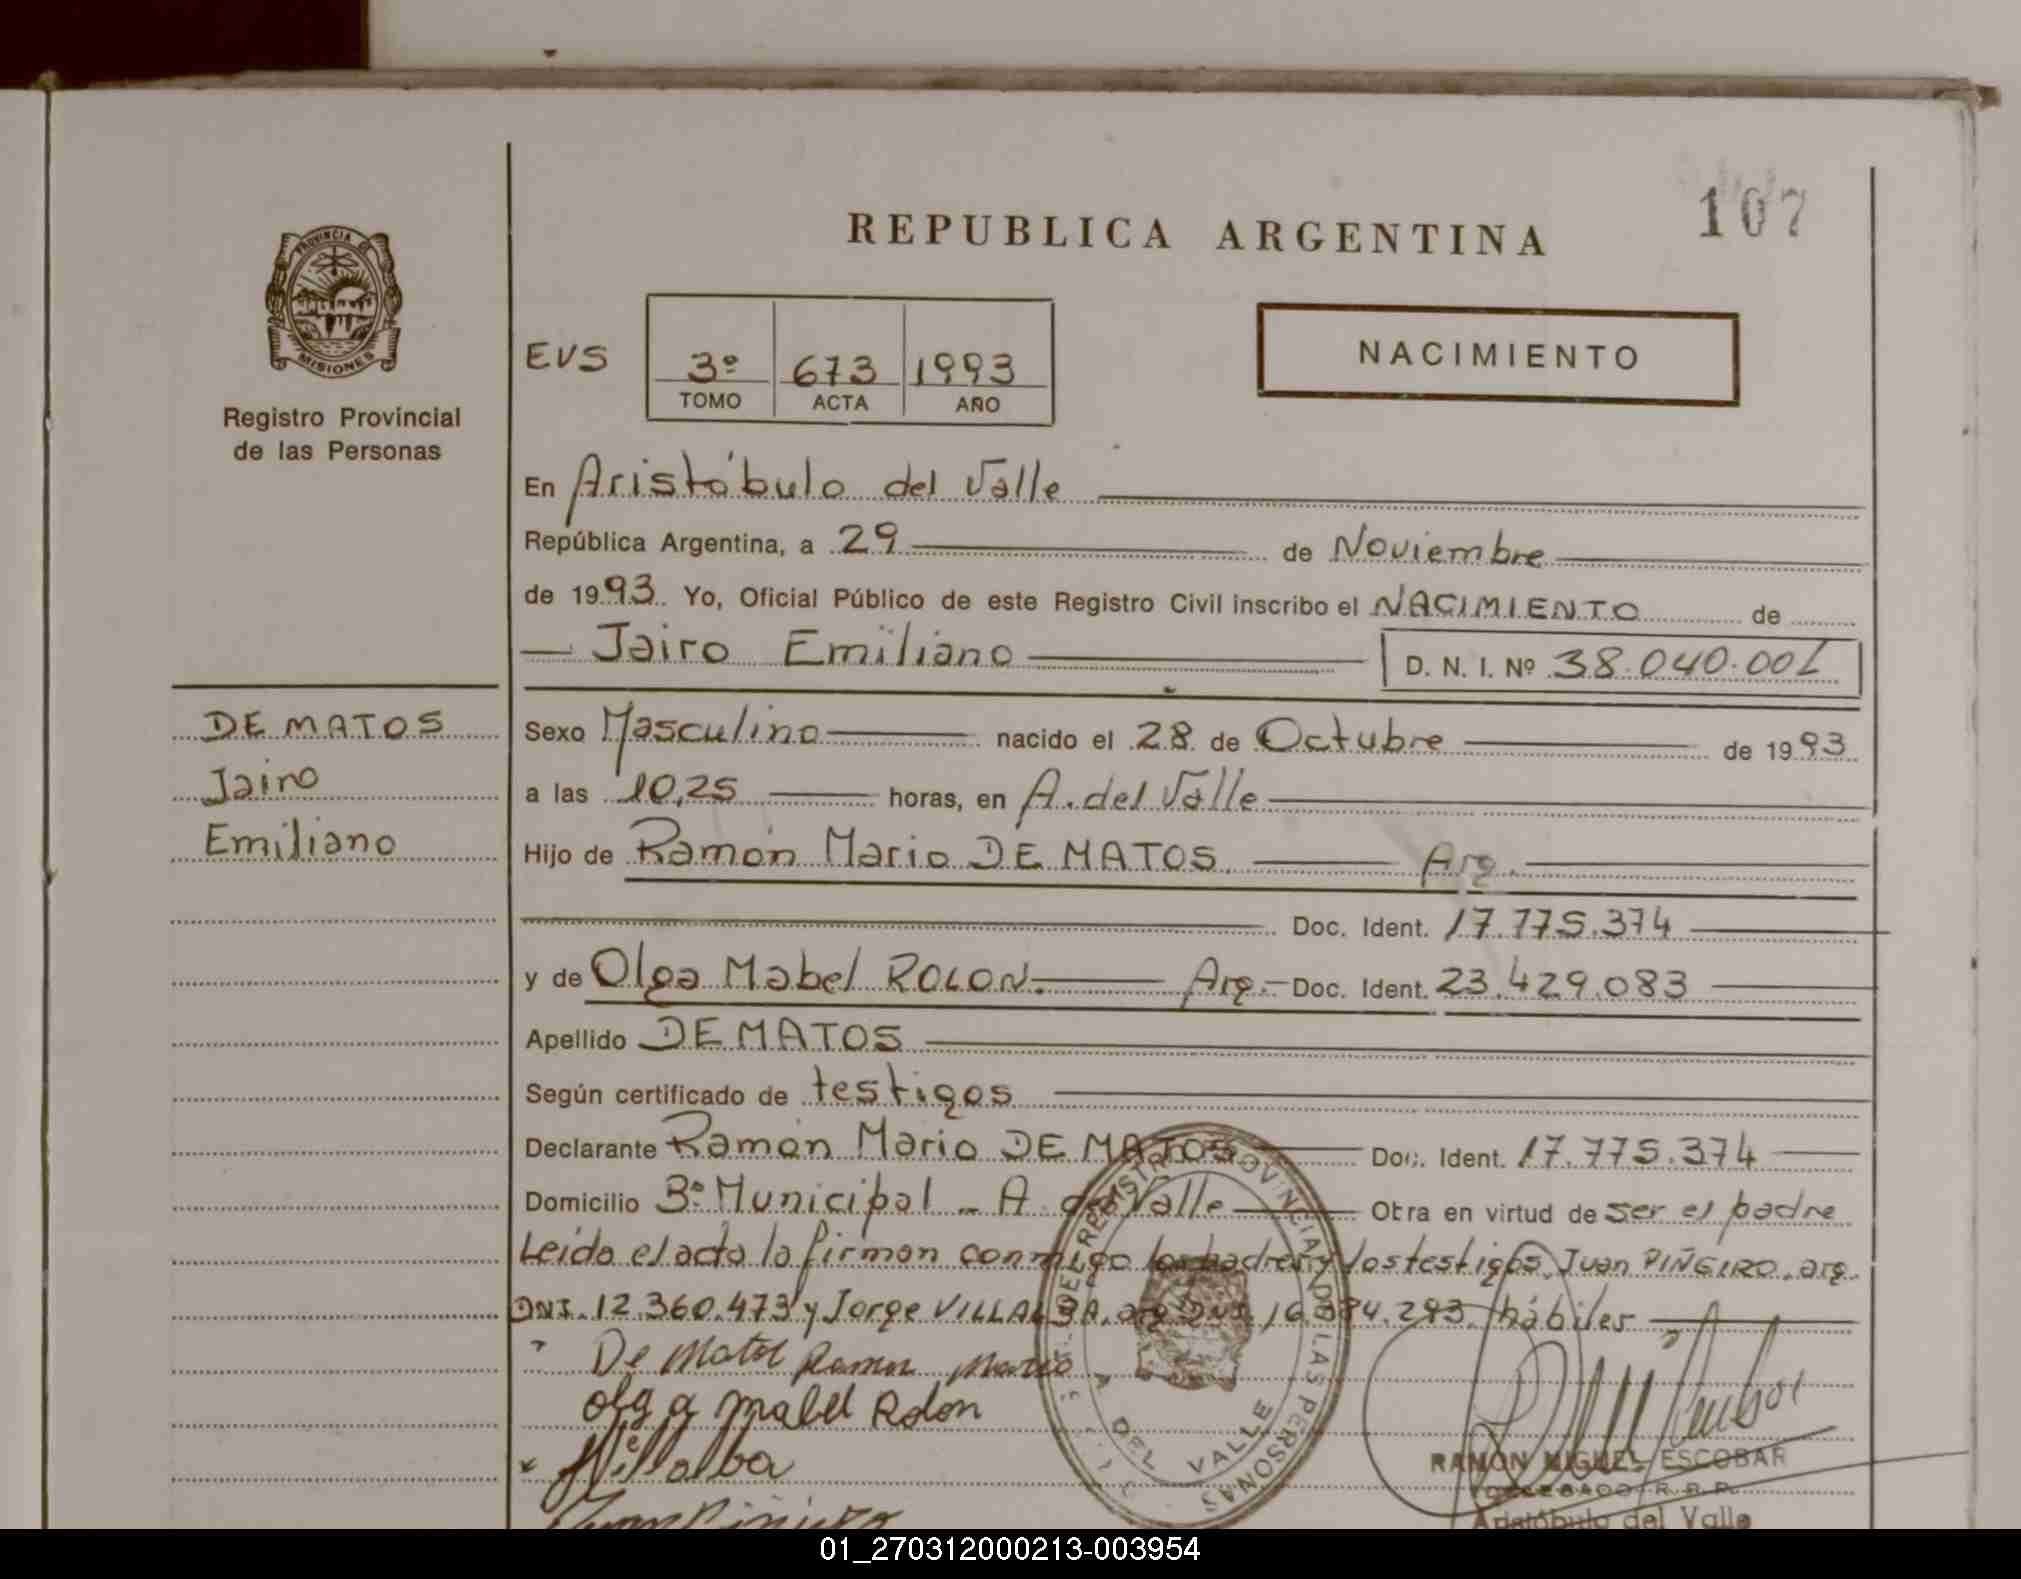 107
REPUBLICA ARGENTINA
PROVINCIA DE
MISIONES
Registro Provincial
de las Personas
EVS
3º 673 1993
TOMO ACTA AÑO
NACIMIENTO
En Aristóbulo del Valle
República Argentina, a 29 de Noviembre
de 1993 Yo, Oficial Público de este Registro Civil inscribo el NACIMIENTO de
Jairo Emiliano D. N. I. Nº 38.040.00
DE MATOS
Jairo
Emiliano
Sexo Masculino nacido el 28 de Octubre de 1993
a las 10,25 horas, en A. del Valle
Hijo de Ramón Mario DE MATOS Arg.
Doc. Ident. 17.775.374
y de Olga Mabel ROLON. Arg. Doc. Ident. 23.429.083
Apellido DE MATOS
Según certificado de testigos
Declarante Ramón Mario DE MATOS Doc. Ident. 17.775.374
Domicilio Bº Municipal - A. del Valle Obra en virtud de ser el padre
Leída el acta la firman conmigo los padres y los testigos Juan PIÑEIRO, arg.
DNI. 12.360.473 y Jorge VILLALBA, arg DNI. 16.384.293. hábiles
De Matos Ramon Mario
Olga Mabel Rolon
Villalba
Juan Piñeiro
DEL REGISTRO PROVINCIAL DE LAS PERSONAS
DEL VALLE
RAMON MIGUEL ESCOBAR
DELEGADO R.P.P.
Aristóbulo del Valle
01_270312000213-003954